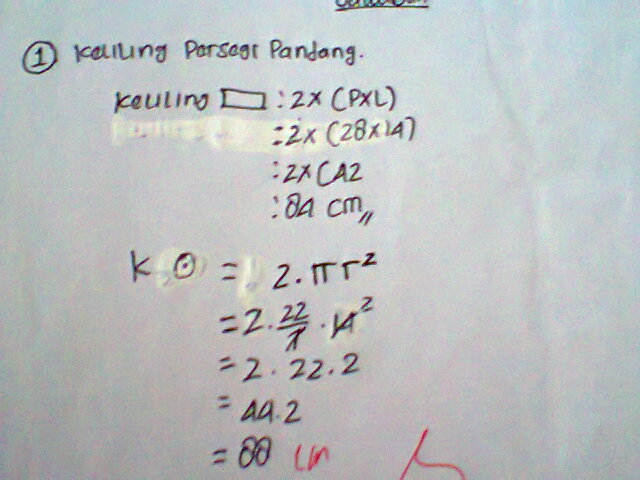 ① Keliling Persegi Pandang.
Keliling ▭ : 2 x (PXL)
= 2 x (28x14)
: 2 x (42
: 84 cm,,
K ⊙ = 2 . π r²
= 2 . 22/7 . 14²
= 2 . 22 . 2
= 44 . 2
= 88 cm